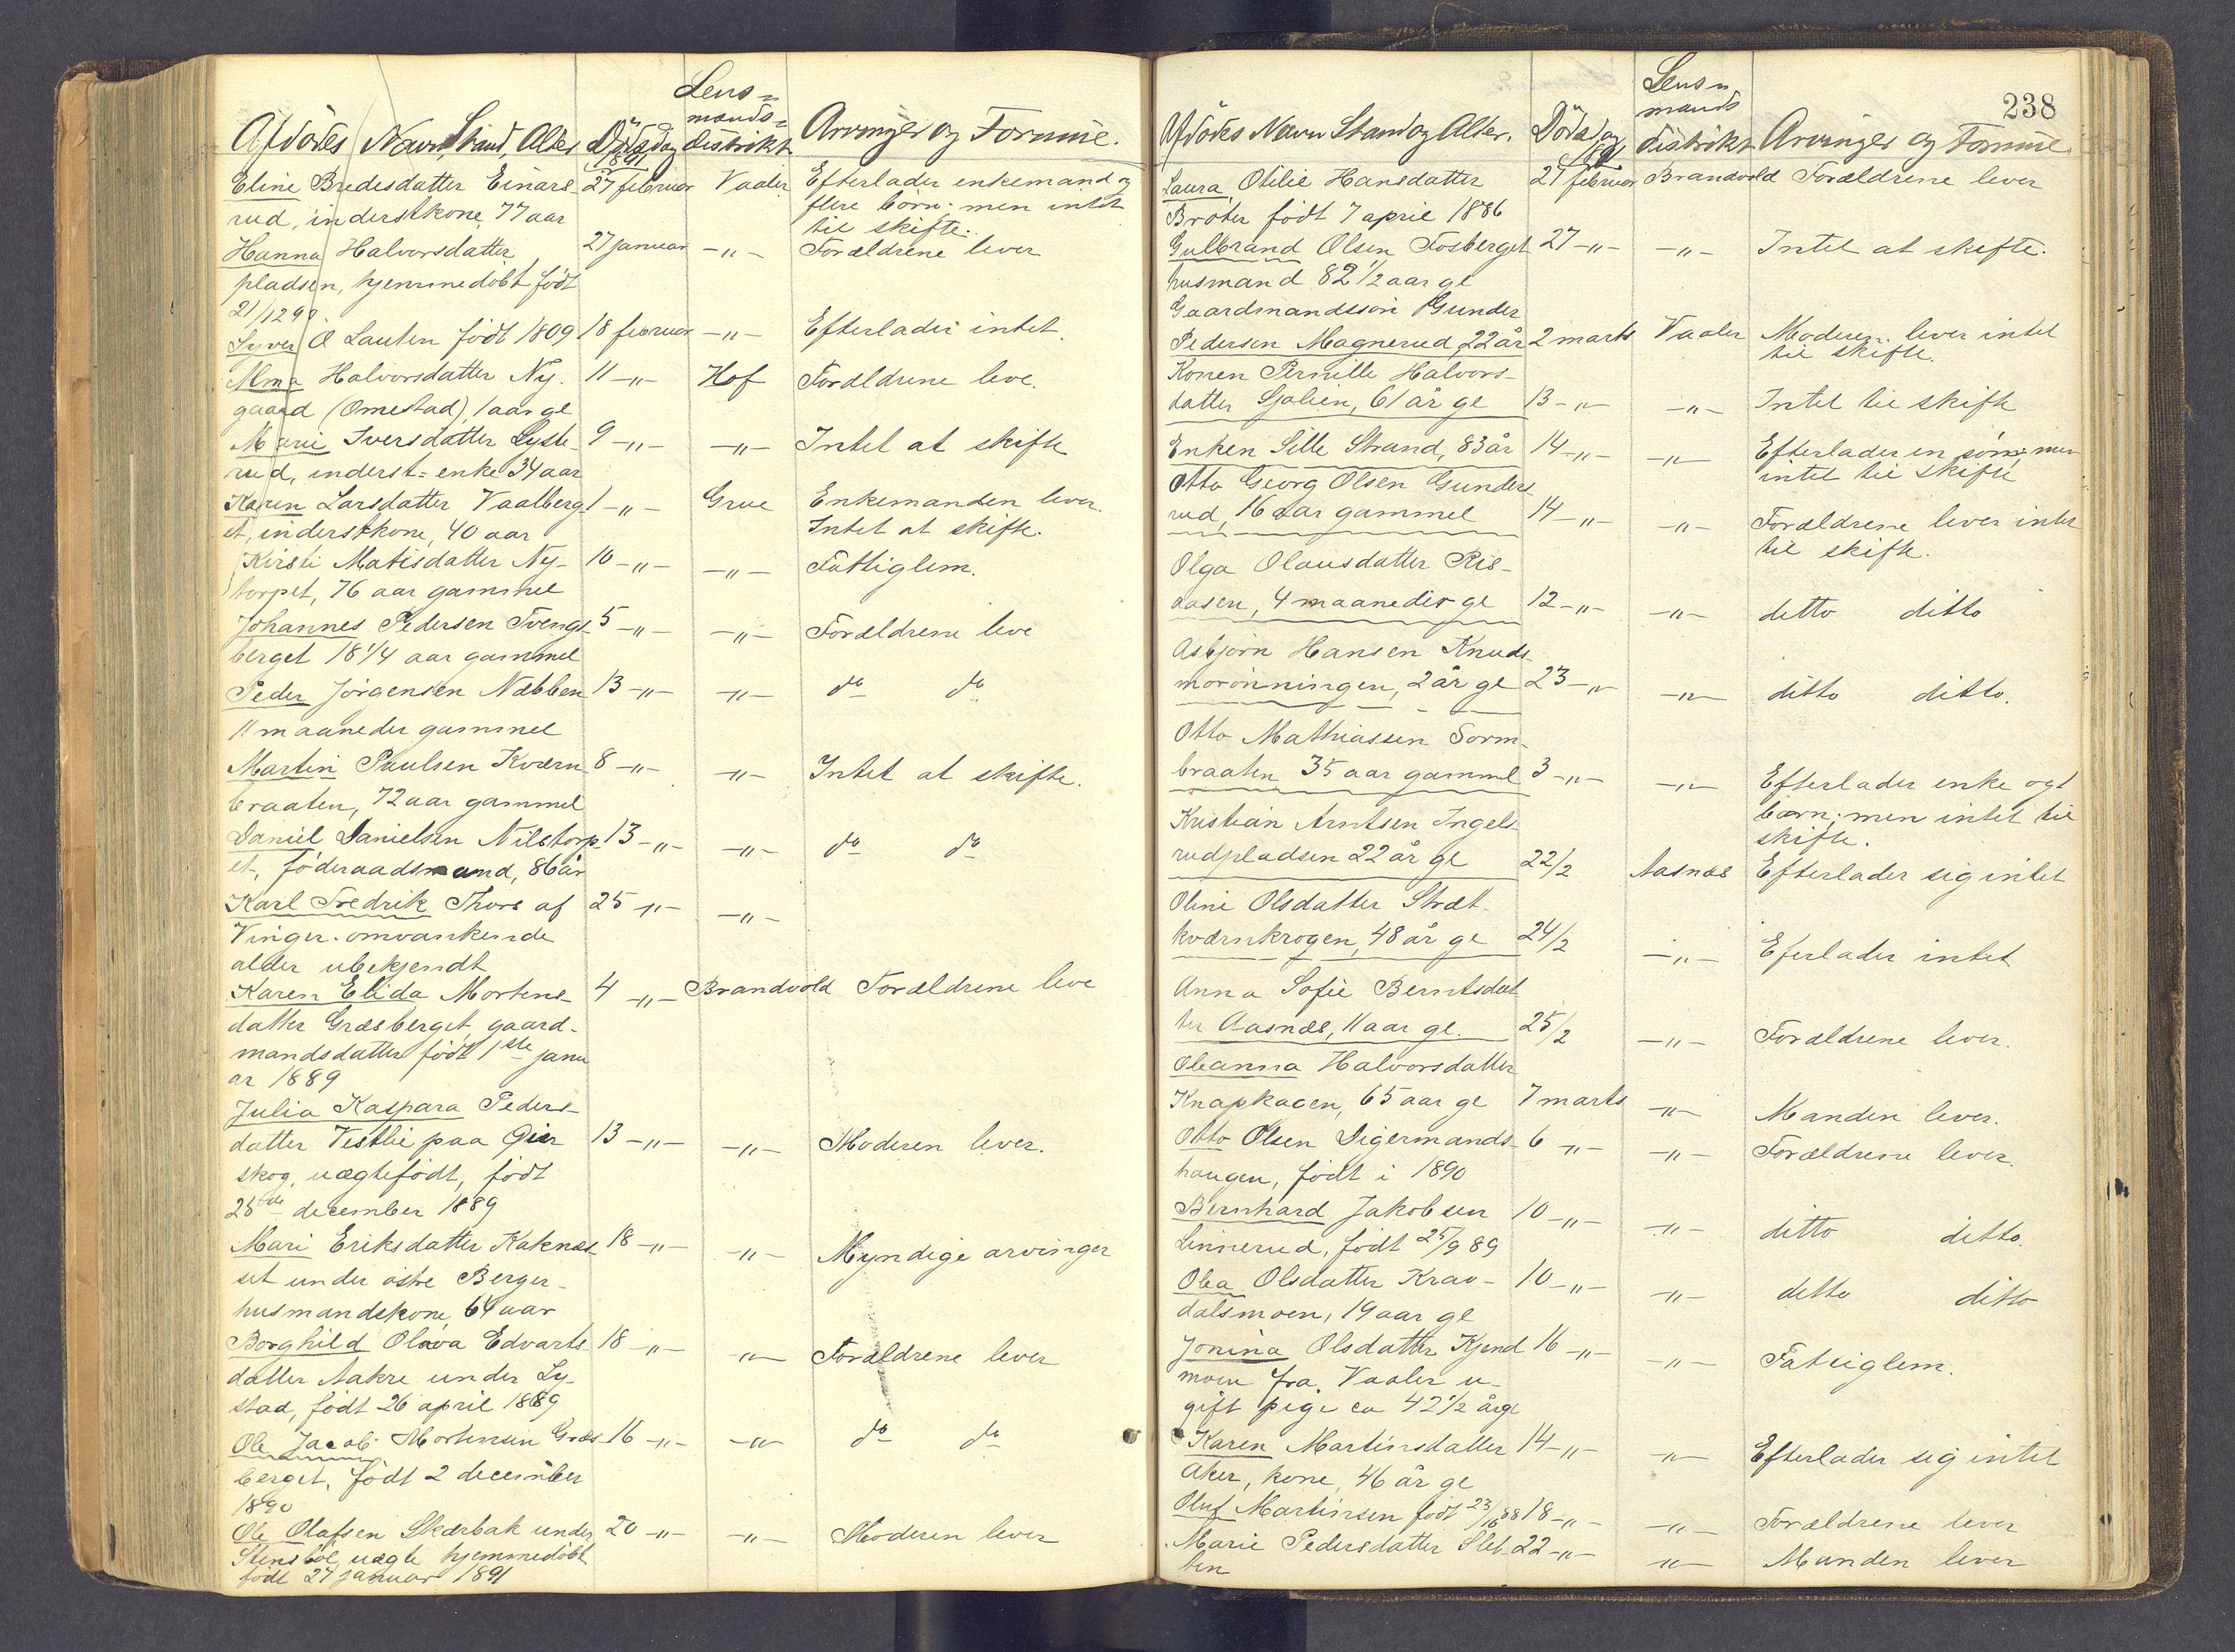 Lens=
mands=
Afdødes Navn, Stand, Alder Dødsdag distrikt Arvinger og Formue.
1891
Eline Bredesdatter Einars- 27 februar Vaaler Efterlader enkemand og
rud, inderstkone, 77 aar flere børn; men intet
til skifte.
Hanna Halvorsdatter 27 januar -"- Forældrene lever
pladsen, hjemmedøbt født
21/12 90
Syver O Lauten født 1809 18 februar -"- Efterlader intet.
Alma Halvorsdatter Ny- 11 -"- Hof Forældrene leve.
gaard (Omestad), 1 aar gl
Marie Iversdatter Lyste- 9 -"- -"- Intet at skifte
rud, inderst= enke 34 aar
Karen Larsdatter Vaalberg- 1 -"- Grue Enkemanden lever.
et, inderstkone, 40 aar Intet at skifte.
Kirsti Matisdatter Ny- 10 -"- -"- Fattiglem.
torpet, 76 aar gammel
Johannes Pedersen Tvengs- 5 -"- -"- Forældrene leve
berget 18 1/4 aar gammel
Peder Jørgensen Næbben 13 -"- -"- do do
11 maaneder gammel
Martin Paulsen Kværn- 8 -"- -"- Intet at skifte.
braaten, 72 aar gammel
Daniel Danielsen Nilstorp- 13 -"- -"- do do
et, føderaadsmand, 86 år
Karl Fredrik Thors af 25 -"- -"-
Vinger. omvankende
alder ubekjendt
Karen Elida Mortens- 4 -"- Brandvold Forældrene leve
datter Græsberget, gaard-
mandsdatter født 1ste janu
ar 1889
Julia Kaspara Peders-
datter Vestlie paa 13 -"- -"- Moderen lever.
skog, uægtefødt, født
25de december 1889
Mari Eriksdatter Kaknæs- 18 -"- -"- Myndige arvinger
set under østre Berger-
husmandskone, 64 aar
Borghild Olava Edvarts- 18 -"- -"- Forældrene lever
datter Aakre under Ly-
stad, født 26 april 1889
Ole Jacob Mortensen Græs- 16 -"- -"- do do
berget, født 2 december
1890
Ole Olafsen Skærbak under 20 -"- -"- Moderen lever
Stensbøl, uægte hjemmedøbt
født 27 januar 1891
238
Lens=
mands
Afdødes Navn Stand og Alder. Dødsdag distrikt Arvinger og Formue.
Laura Otilie Hansdatter 27 februar Brandvold Forældrene lever
Bråten født 7 april 1886
Gulbrand Olsen Fosberget 27 -"- -"- Intet at skifte.
husmand 82 1/2 aar gl
Gaardmandssøn Gunder
Pedersen Magnerud, 22 år 2 marts Vaaler Moderen lever intet
til skifte.
Konen Pernille Halvors-
datter Sjølien, 61 år gl 13 -"- -"- Intet til skifte
Enken Sille Strand, 83 år 14 -"- -"- Efterlader en søn; men
intet til skifte
Otto Georg Olsen Gunders-
rud, 16 aar gammel 14 -"- -"- Forældrene lever intet
til skifte.
Olga Olausdatter Ris-
aasen, 4 maaneder gl 12 -"- -"- ditto ditto
Asbjørn Hansen Knuds-
morønningen, 2 år gl 23 -"- -"- ditto ditto.
Otto Mathiassen Sorm-
braaten 35 aar gammel 3 -"- -"- Efterlader enke og 1
barn; men intet til
skifte.
Kristian Arntsen Ingels-
rudpladsen 22 år gl 22/2 Aasnæs Efterlader sig intet
Oline Olsdatter Stræt-
kværnkrogen, 48 år gl 24/2 -"- Eferlader intet
Anna Sofie Berntsdat
ter Aasnæs, 11 aar gl. 25/2 -"- Forældrene lever.
Oleanna Halvorsdatter
Knapkagen, 65 aar gl 7 marts -"- Manden lever.
Otto Olsen Digermands- 6 -"- -"- Forældrene lever.
haugen, født i 1890
Bernhard Jakobsen 10 -"- -"- ditto ditto.
Linnerud, født 25/9 89
Olea Olsdatter Krav- 10 -"- -"- ditto ditto
dalsmoen, 19 aar gl
Jonina Olsdatter Kjend 16 -"- -"- Fattiglem.
moen fra Vaaler u-
gift pige ca 42 1/2 år gl
Karen Martinsdatter 14 -"- -"- Efterlader sig intet
Aker, kone, 46 år gl
Oluf Martinsen født 23/10 88 18 -"- -"- Forældrene lever
Marie Pedersdatter Slet- 22 -"- -"- Manden lever
ten